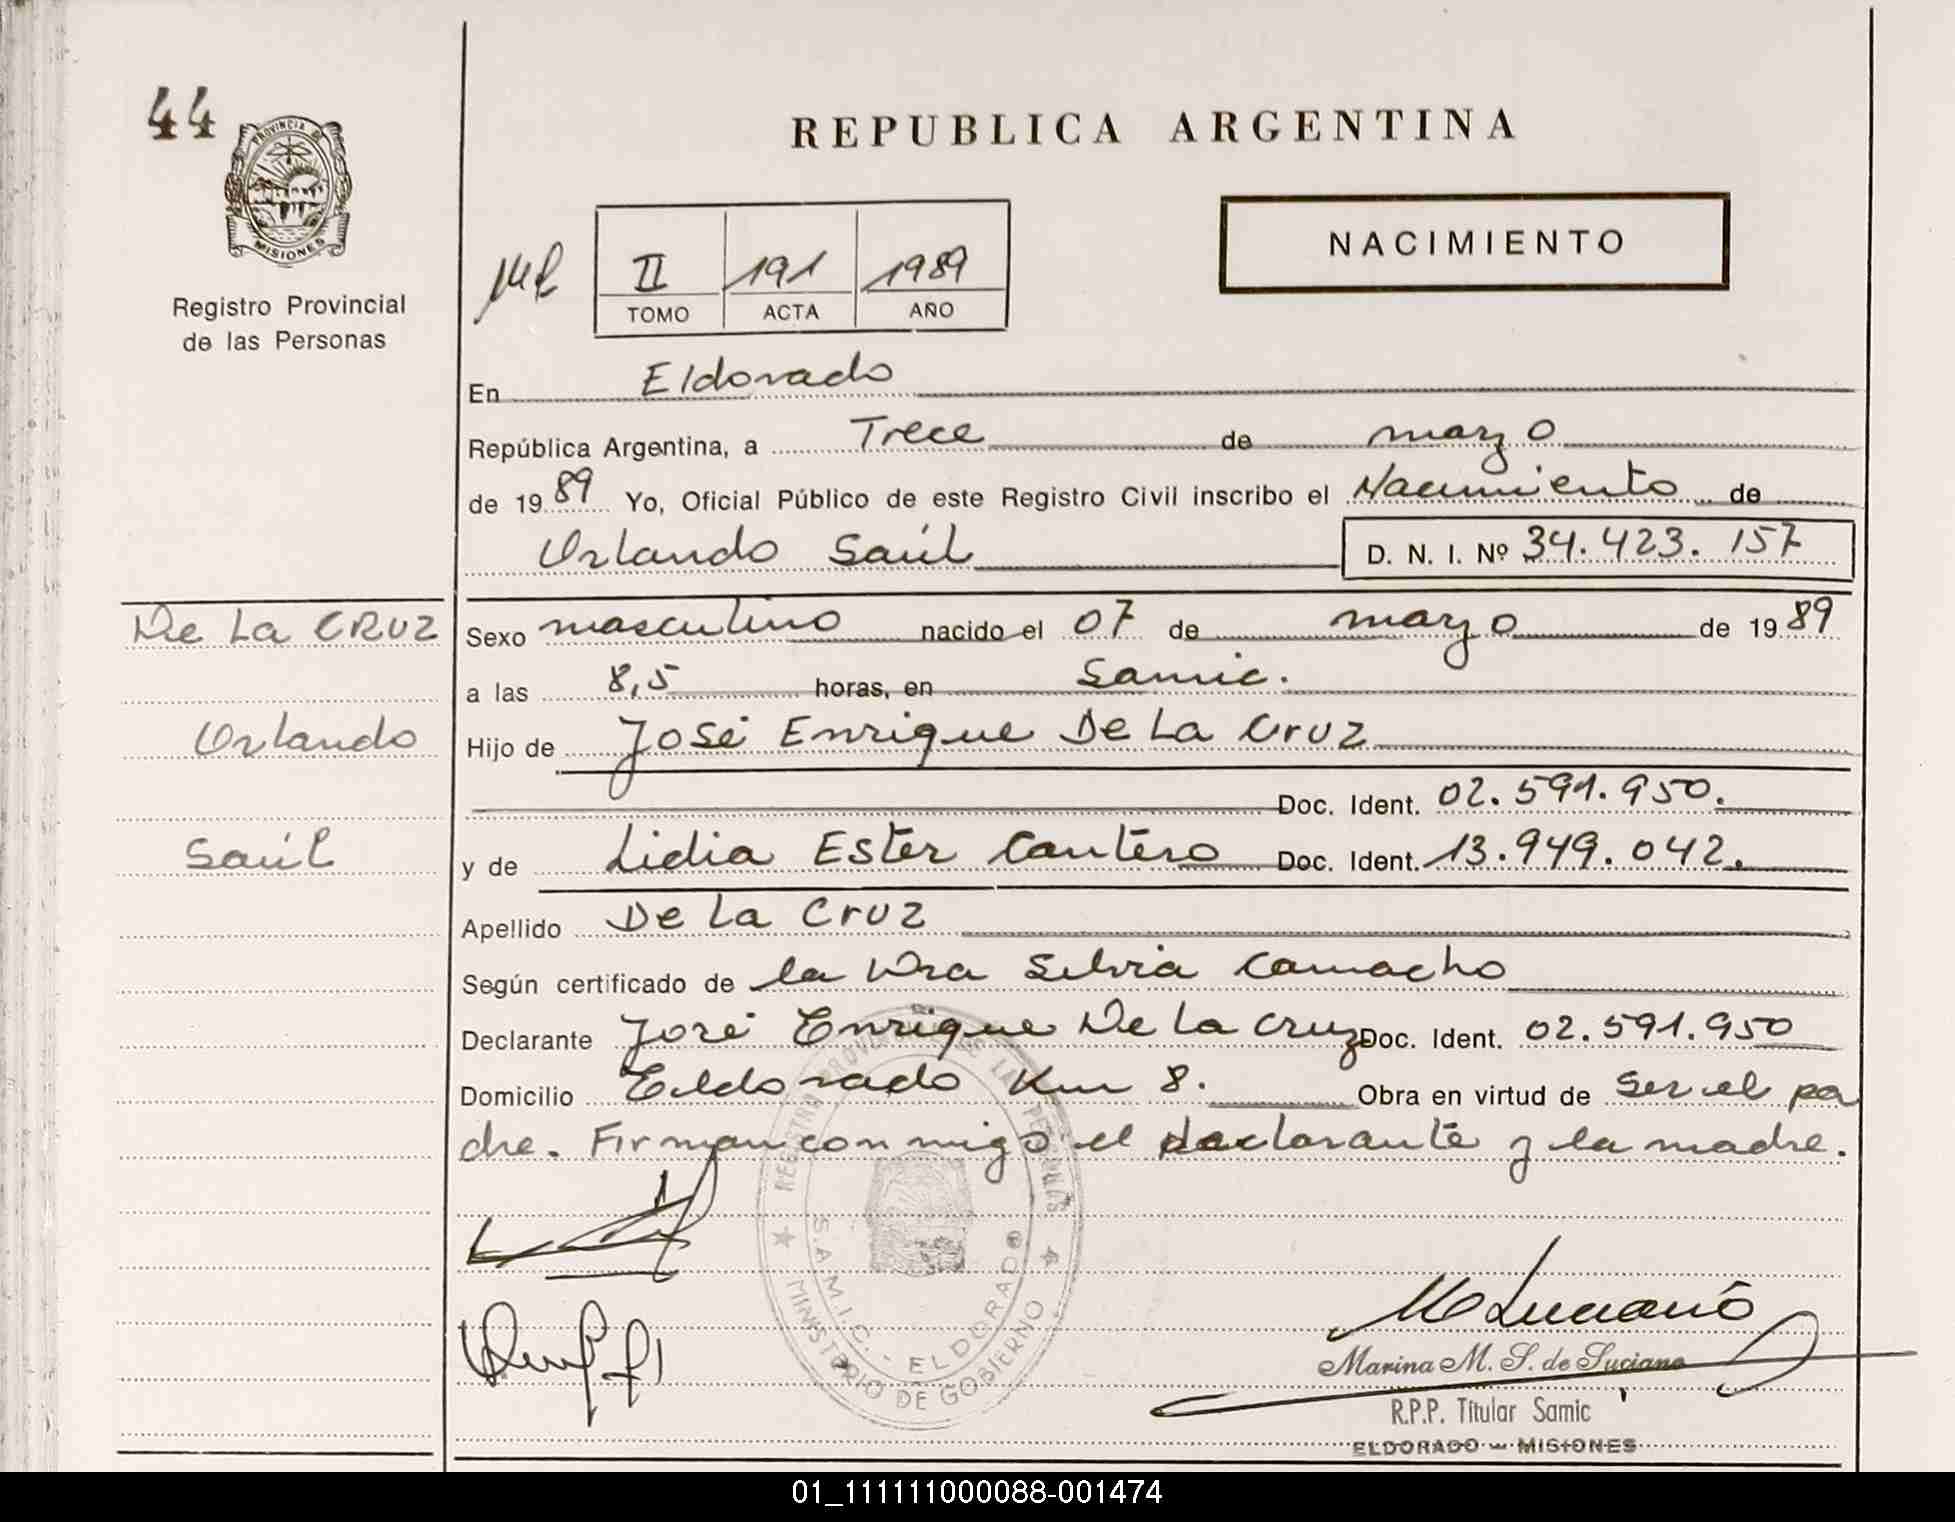 44
PROVINCIA DE
MISIONES
Registro Provincial
de las Personas
REPUBLICA ARGENTINA
NACIMIENTO
II 191 1989
TOMO ACTA AÑO
En Eldorado
República Argentina, a Trece de marzo
de 1989 Yo, Oficial Público de este Registro Civil inscribo el Nacimiento de
Orlando Saúl D. N. I. Nº 34.423.157
De La CRUZ
Sexo masculino nacido el 07 de marzo de 1989
a las 8,5 horas, en Samic.
Orlando
Hijo de José Enrique De La Cruz
Doc. Ident. 02.591.950.
Saúl
y de Lidia Ester Cantero Doc. Ident. 13.949.042.
Apellido De La Cruz
Según certificado de la Dra Silvia Camacho
Declarante José Enrique De La Cruz Doc. Ident. 02.591.950
Domicilio Eldorado Km 8. Obra en virtud de ser el pa
dre. Firman conmigo el declarante y la madre.
REGISTRO PROVINCIAL DE LAS PERSONAS
S.A.M.I.C. - ELDORADO
MINISTERIO DE GOBIERNO
M Luciano
Marina M. S. de Luciano
R.P.P. Titular Samic
ELDORADO - MISIONES
01_111111000088-001474